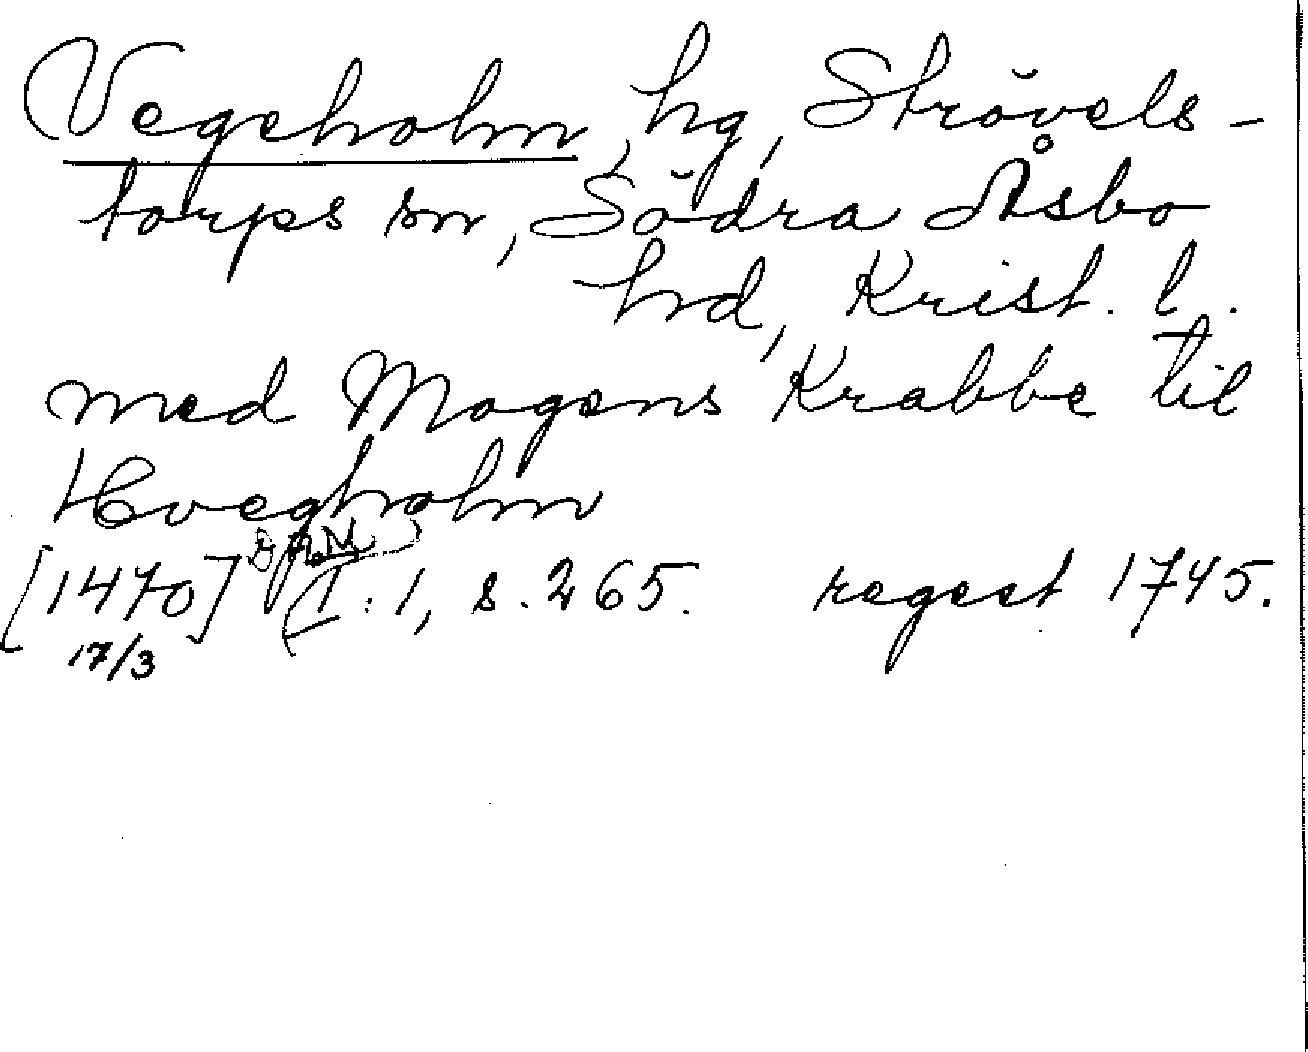 Vegeholm, hg, Strövels-
torps sn, Södra Åsbo
hrd, Krist. l.
med Mogens Krabbe til
Hvegholm
[1470] I:1, s. 265. regest 1745.
17/3